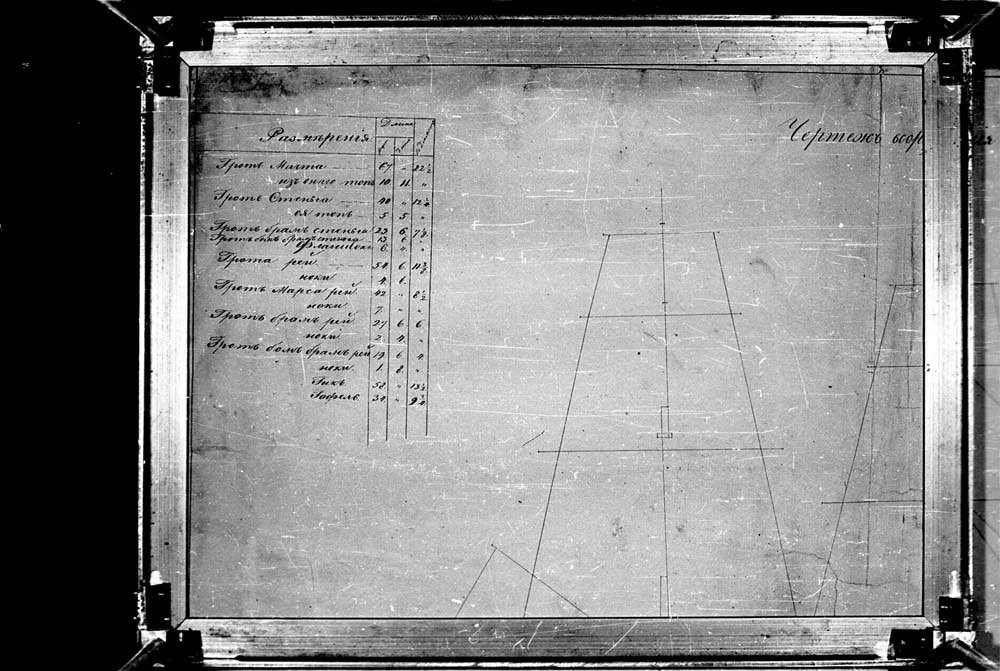 Чертежъ воор
Размѣренія Длина
Гротъ Мачта 67 „ 22½
изъ оного топъ 10 11 „
Гротъ Стеньга 40 „ 12¾
ея топъ 5 5 „
Гротъ брамъ стеньга 23 6 7¾
Гротъ бомъ брамъ стеньга 13 6 „
Флагштокъ 6 „ „
Грота рей 54 6 11¾
ноки 4 6
Гротъ Марса рей 42 „ 8½
ноки 7 „ „
Гротъ брамъ рей 27 6 6
ноки 2 4 „
Гротъ бомъ брамъ рей 19 6 4
ноки 1 8 „
Гикъ 58 „ 13½
Гафель 34 „ 9¾